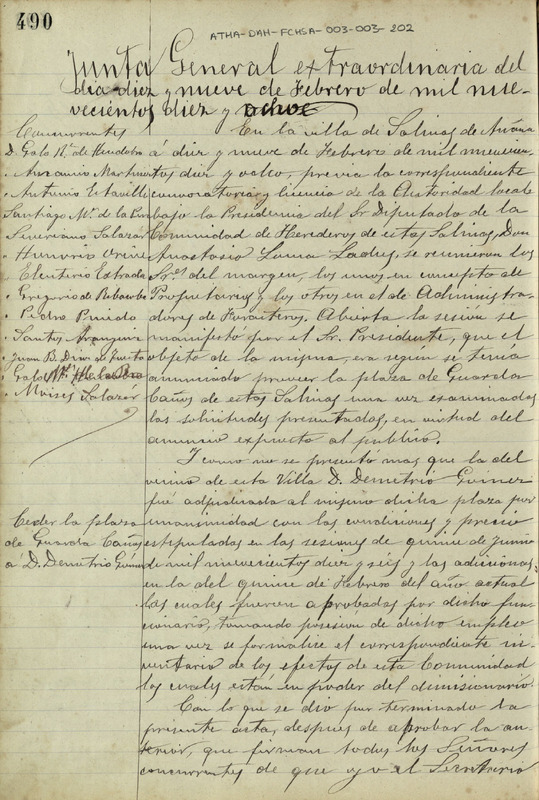 490
ATHA-DAH-FCHSA-003-003-202
Junta General extraordinaria del
dia diez y nueve de Febrero de mil nue-
vecientos diez y ocho
Concurrentes
D. Galo Mz. de Mendobro
" Antonio Estavillo
Santiago Mz. de la
Severiano Salazar
" Honorio
" Eleuterio Estrada
" Gregorio de
" Pedro Pinedo
" Santos Aranguiz
Juan B. Diaz de
Galo
" Moises Salazar
Ceder la plaza
de Guarda Caños
á D. Demetrio
En la villa de Salinas de Añana
á diez y nueve de Febrero de mil nuevecien-
tos diez y ocho, previa la correspondiente
convocatoria y licencia de la Autoridad local
bajo la Presidencia del Sr. Diputado de la
Comunidad de Herederos de estas Salinas, Don
Anastasio se reunieron los
Sres. del margen, los unos en concepto de
Propietarios y los otros en el de Administra-
dores de Forasteros. Abierta la sesion se
manifestó por el Sr. Presidente, que el
objeto de la misma, era segun se tenía
anunciado proveer la plaza de Guarda
Caños de estas Salinas una vez examinadas
las solicitudes presentadas, en virtud del
anuncio expuesto al publico.
I como no se presentó mas que la del
vecino de esta Villa D. Demetrio
fué adjudicada al mismo dicha plaza por
unanimidad con las condiciones y precio
estipuladas en las sesiones de quince de junio
de mil nuevecientos diez y seis y las adicionas
en la del quince de Febrero del año actual
las cuales fueron aprobadas por dicho fun-
cionario, tomando posesion de dicho empleo
una vez se formalice el correspondiente in-
ventario de los efectos de esta Comunidad
los cuales están en poder del dimisionario.
Con lo que se dio por terminado la
presente acta, despues de aprobar la an-
terior, que firman todos los Señores
concurrentes de que yo el Secretario